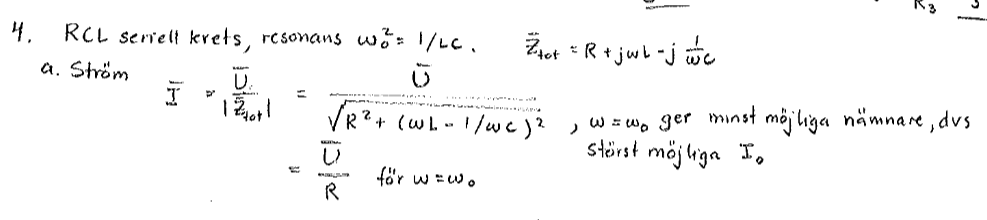 R₃ 3
4. RCL seriell krets, resonans ω₀² = 1/LC. Z̄tot = R + jωL - j 1/ωC
a. Ström
Ī = Ū/|Z̄tot| = Ū/√(R² + (ωL - 1/ωC)², ω = ω₀ ger minst möjliga nämnare, dvs
störst möjliga I₀
= Ū/R för ω = ω₀